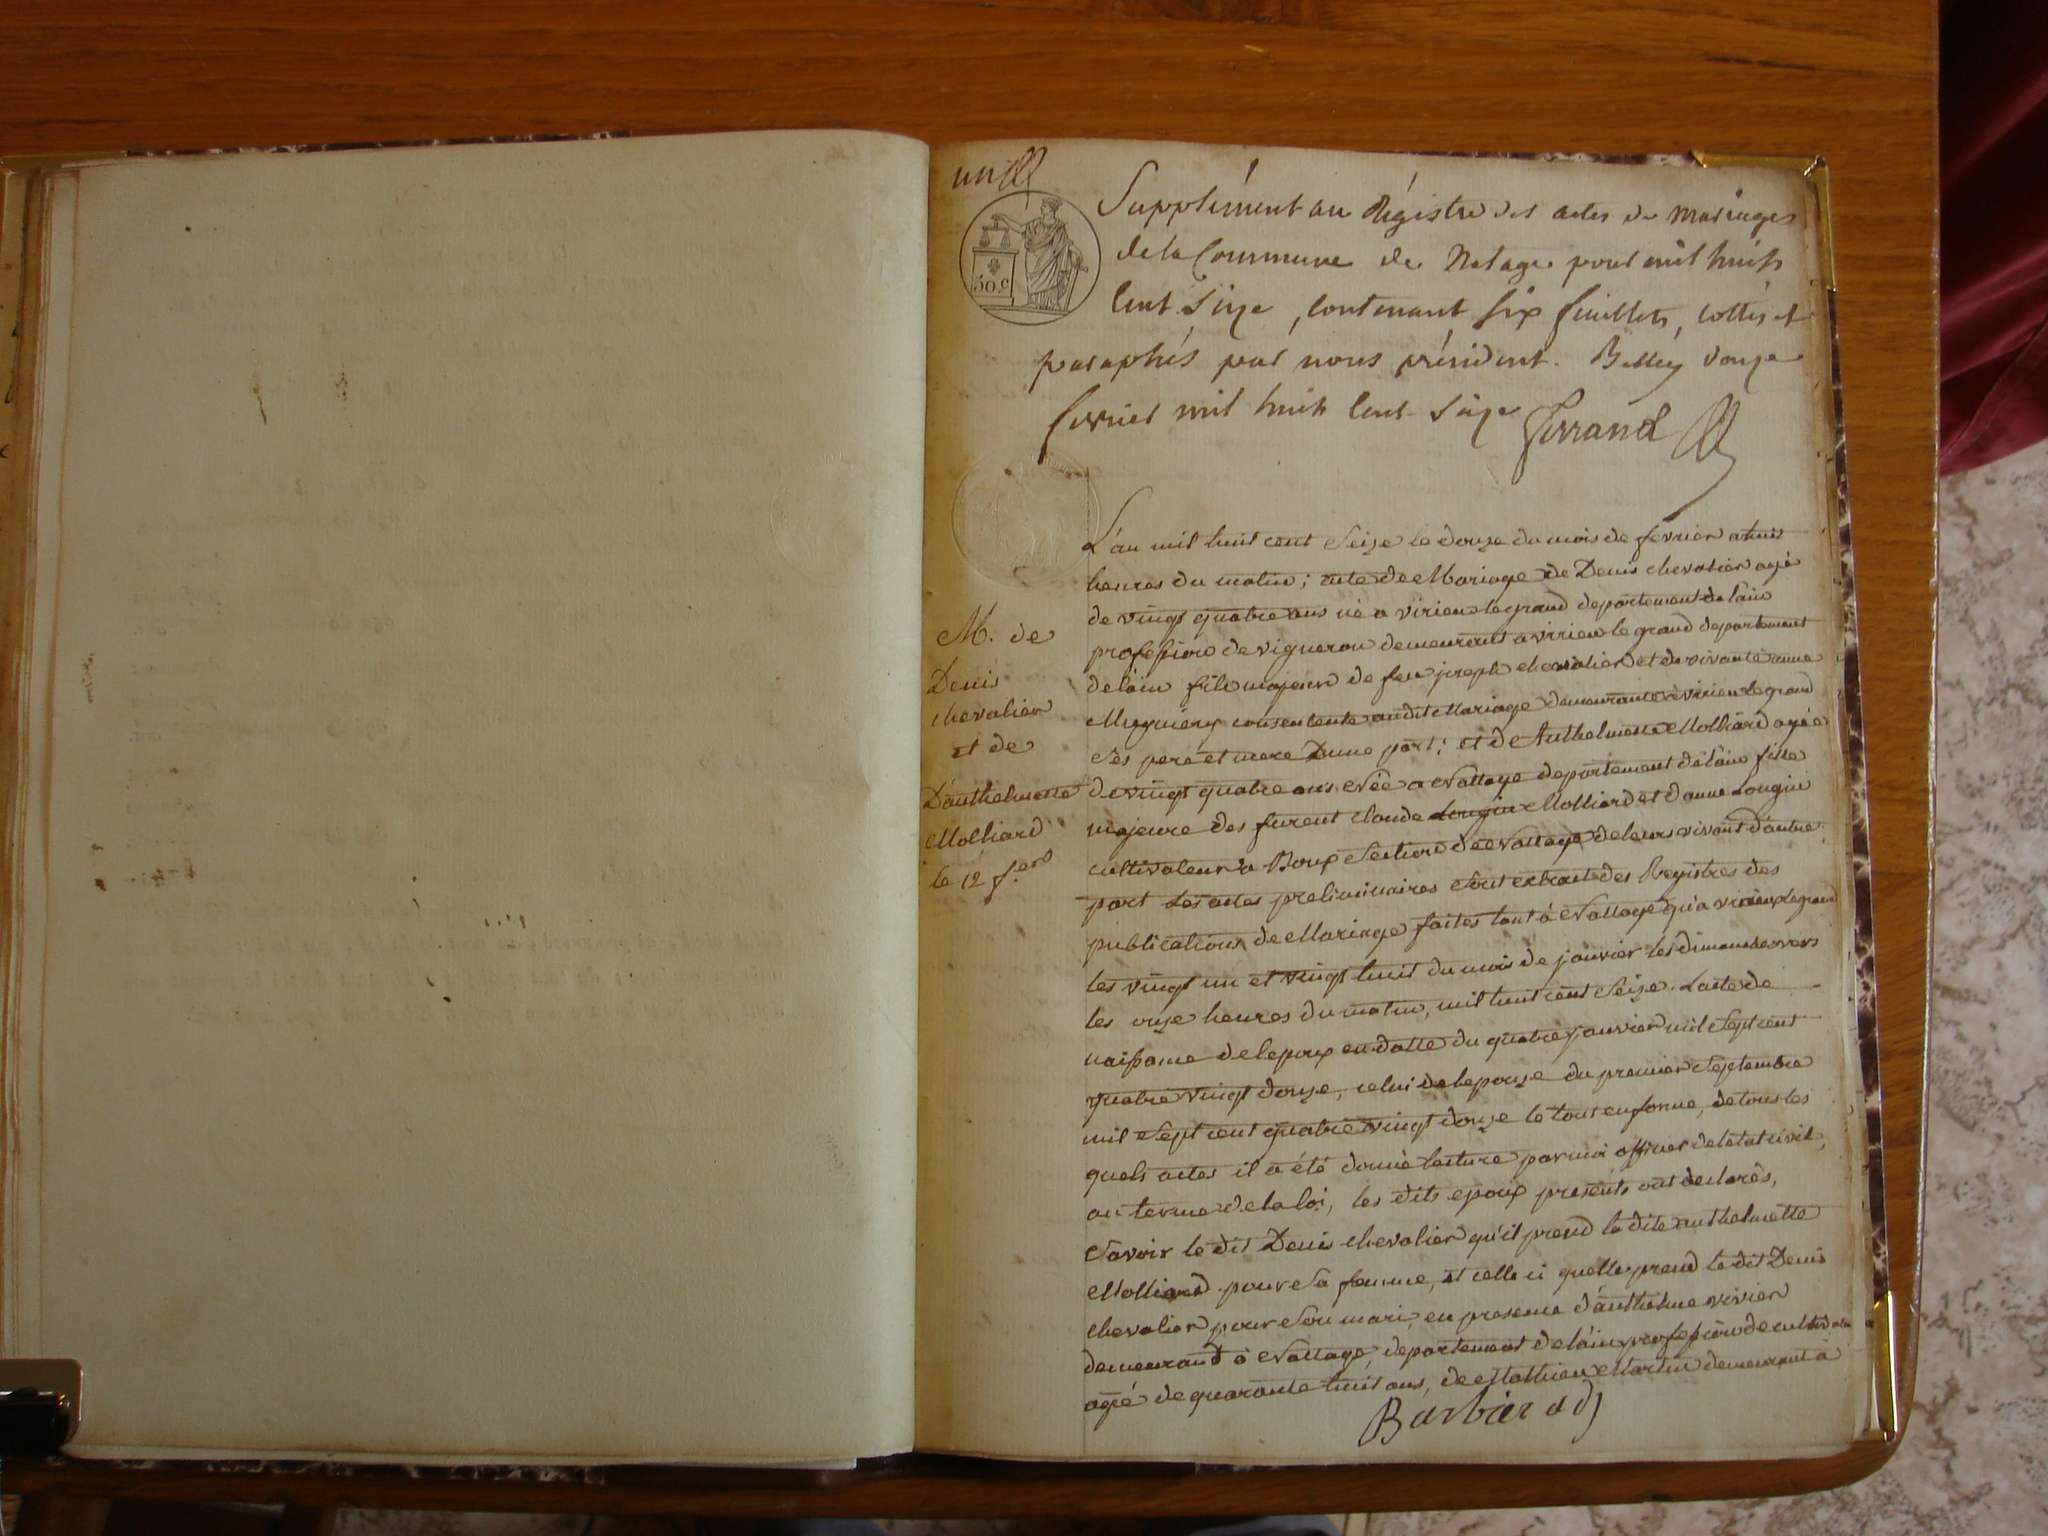 un
50.c
Supplément au Régistre des actes de Mariages
de la Commune de Natage pour mil huit
Cent Seize, Contenant Six feuillets, cottés et
paraphés par nous président. Belley douze
fevrier mil huit Cent Seize Ferrand
M. de
Denis
chevalier
et de
D'anthelmette
Molliard
le 12 f.er
L'an mil huit cent Seize le douze du mois de fevrier a huit
heures du matin; acte de Mariage de Denis chevalier agé
de vingt quatre ans né a virieu le grand departement de lain
profession de vigneron demeurant a virieu le grand departement
de lain fils majeur de feu joseph chevalier et de vivante anne
consentente audit Mariage demeurante a virieu le grand
Ses pere et mere Dune part; et de Anthelmette Molliard agée
de vingt quatre ans Née a Nattage departement de lain fille
majeure des furent claude Longin Molliard et danne Longin
cultivateur a Boux Section de Nattage de leurs vivant d'autre
part Les actes preliminaires Sont extrait des Registres des
publications de Mariage faites tant à Nattage qu'a virieux le grand
les vingt un et vingt huit du mois de janvier les dimanche vers
les onze heures du matin, mil huit cent Seize. Lacte de
naissance de lepoux en datte du quatre janvier mil Sept cent
quatre vingt douze, celui de lepouse du premier Septembre
mil Sept cent quatre vingt douze le tout en forme, de tous les
quels actes il a été donné lecture par moi officier de letat civil,
au terme de la loi, les dits epoux presents ont declarés,
Savoir le dit Denis chevalier qu'il prend la dite anthelmette
Molliard pour Sa femme, et celle ci quelle prend le dit Denis
chevalier pour Son mari, en presence d'anthelme vivier
demeurand à Nattage, departement de lain profession de
agé de quarante huit ans, de Mathieu Martin demeurant à
Barbier adj